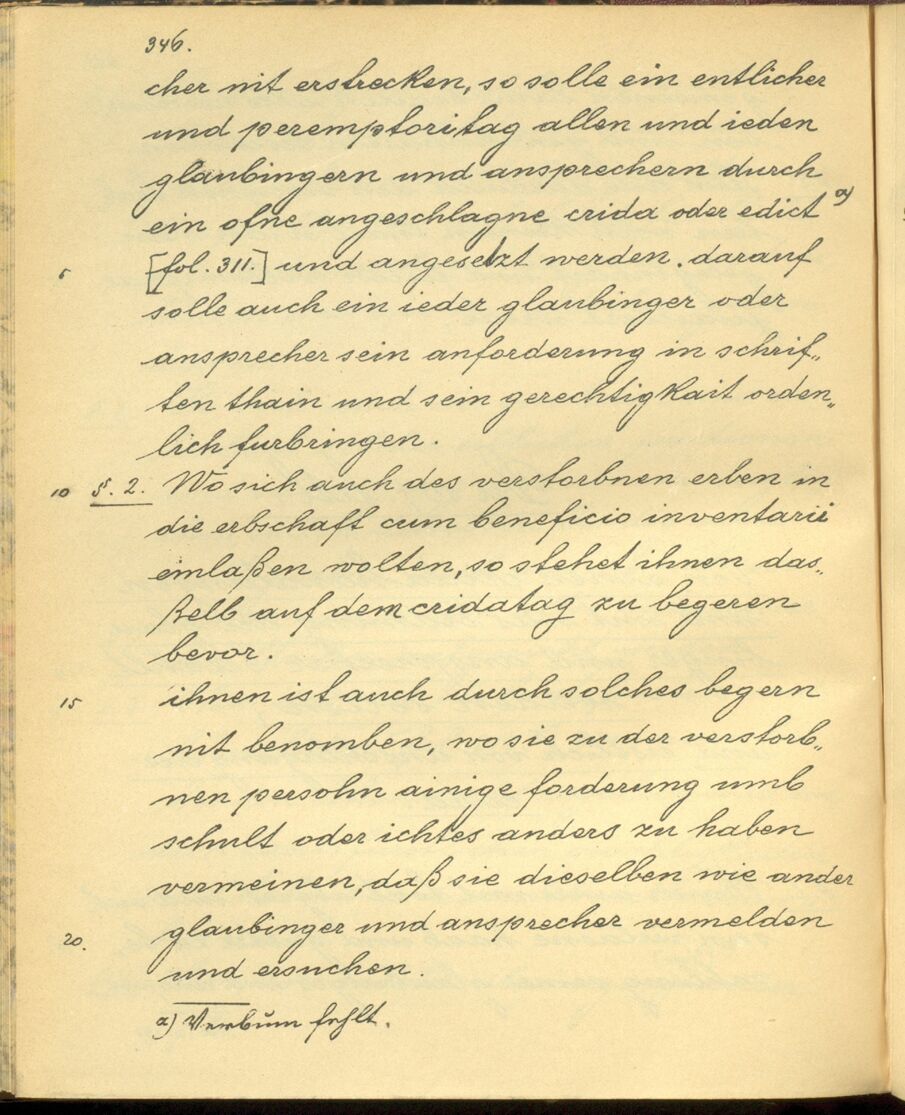 346.
cher nit erstrecken, so solle ein entlicher
und peremptori tag allen und ieden
glaubingern und ansprechern durch
ein ofne angeschlagne crida oder edict a)
5 [fol. 311.] und angesetzt werden. darauf
solle auch ein ieder glaubinger oder
ansprecher sein anforderung in schrif„
ten thain und sein gerechtigkait orden„
lich furbringen.
10 §. 2. Wo sich auch des verstorbnen erben in
die erbschaft cum beneficio inventarii
einlaßen wolten, so stehet ihnen das„
ßelb auf dem cridatag zu begeren
bevor.
15 ihnen ist auch durch solches begern
nit benomben, wo sie zu der verstorb„
nen persohn ainige forderung umb
schult oder ichtes anders zu haben
vermeinen, daß sie dieselben wie ander
20. glaubinger und ansprecher vermelden
und ersuchen.
a) Verbum fehlt.